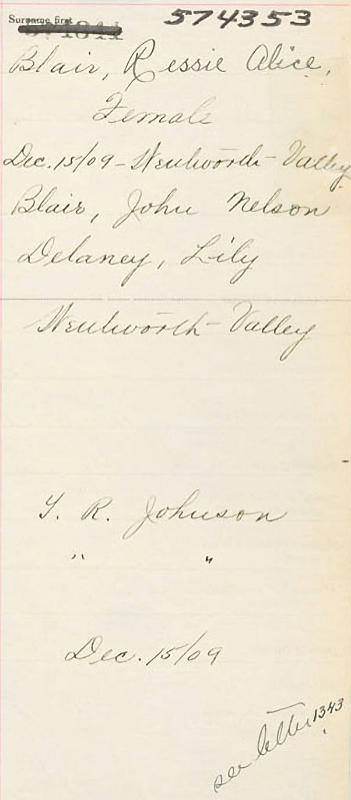 Surname first 574353
Blair, Ressie Alice,
Female
Dec. 15/09 - Wentworth Valley
Blair, John Nelson
Delaney, Lily
Wentworth Valley
T. R. Johnson
" "
Dec. 15/09
see letter 1343